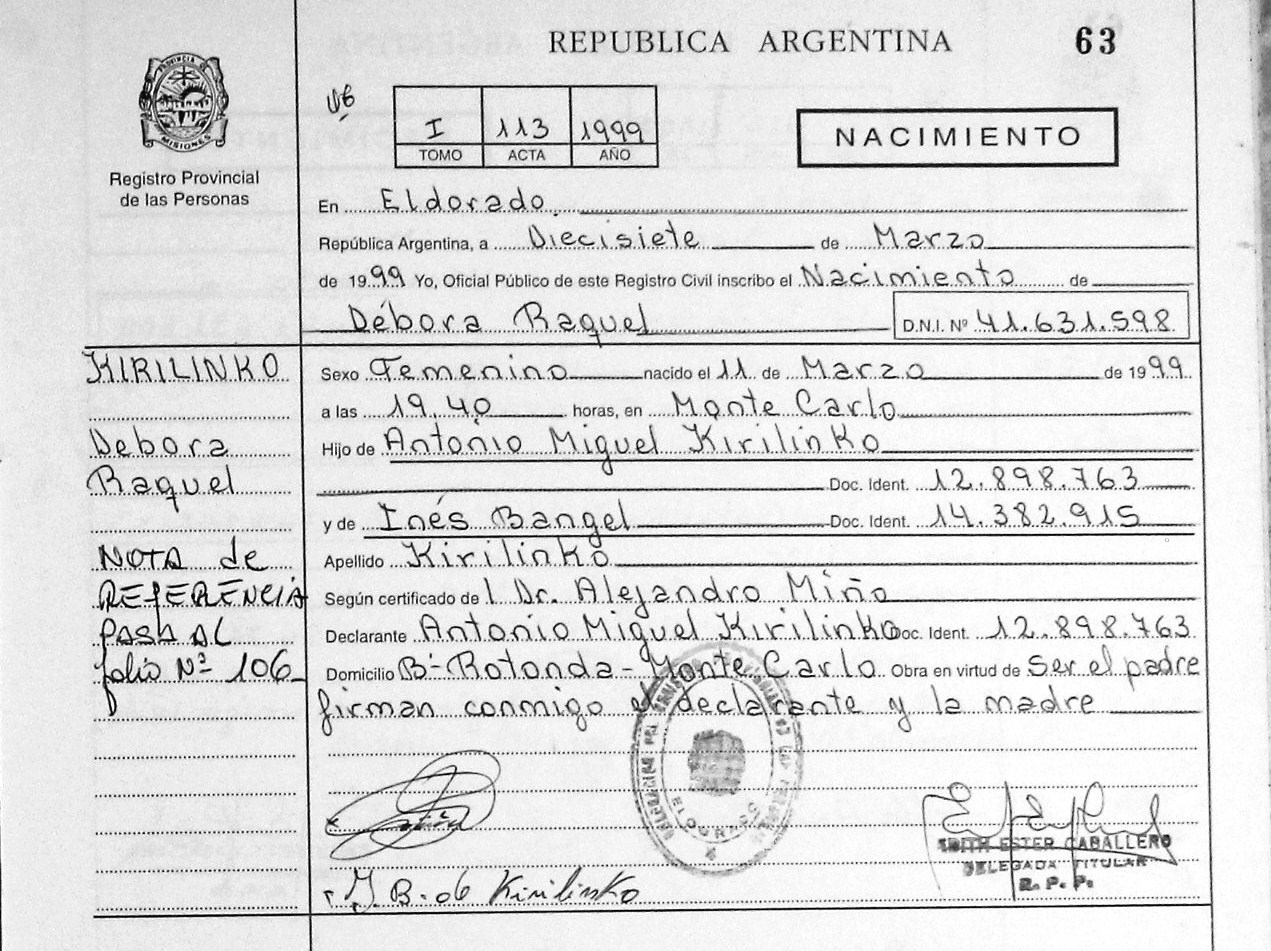 REPUBLICA ARGENTINA 63
PROVINCIA DE MISIONES
Registro Provincial
de las Personas
I 113 1999
TOMO ACTA AÑO
NACIMIENTO
En Eldorado
República Argentina, a Diecisiete de Marzo
de 1999 Yo, Oficial Público de este Registro Civil inscribo el Nacimiento de
Débora Raquel D.N.I. Nº 41.631.598
KIRILINKO
Debora
Raquel
NOTA de
REFERENCIA
PASA AL
folio Nº 106
Sexo Femenino nacido el 11 de Marzo de 1999
a las 19,40 horas, en Monte Carlo
Hijo de Antonio Miguel Kirilinko
Doc. Ident. 12.898.763
y de Inés Bangel Doc. Ident. 14.382.915
Apellido Kirilinko
Según certificado de l Dr. Alejandro Miño
Declarante Antonio Miguel Kirilinko Doc. Ident. 12.898.763
Domicilio Bº Rotonda - Monte Carlo Obra en virtud de Ser el padre
firman conmigo el declarante y la madre
ELDORADO
B. de Kirilinko
EDITH ESTER CABALLERO
DELEGADA TITULAR
R. P. P.